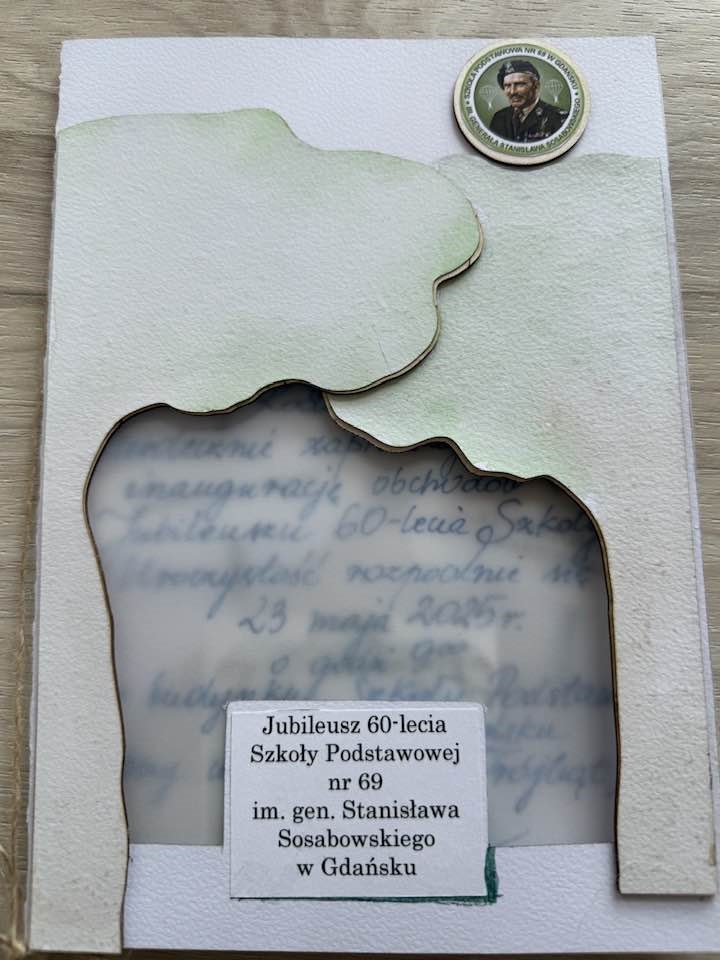 SZKOŁA PODSTAWOWA NR 69 W GDAŃSKU
IM. GENERAŁA STANISŁAWA SOSABOWSKIEGO
inaugurację obchodów
Jubileuszu 60-lecia Szkoły
Uroczystość rozpocznie się
23 maja 2025 r.
o godz. 9⁰⁰
budynku Szkoły
Jubileusz 60-lecia
Szkoły Podstawowej
nr 69
im. gen. Stanisława
Sosabowskiego
w Gdańsku